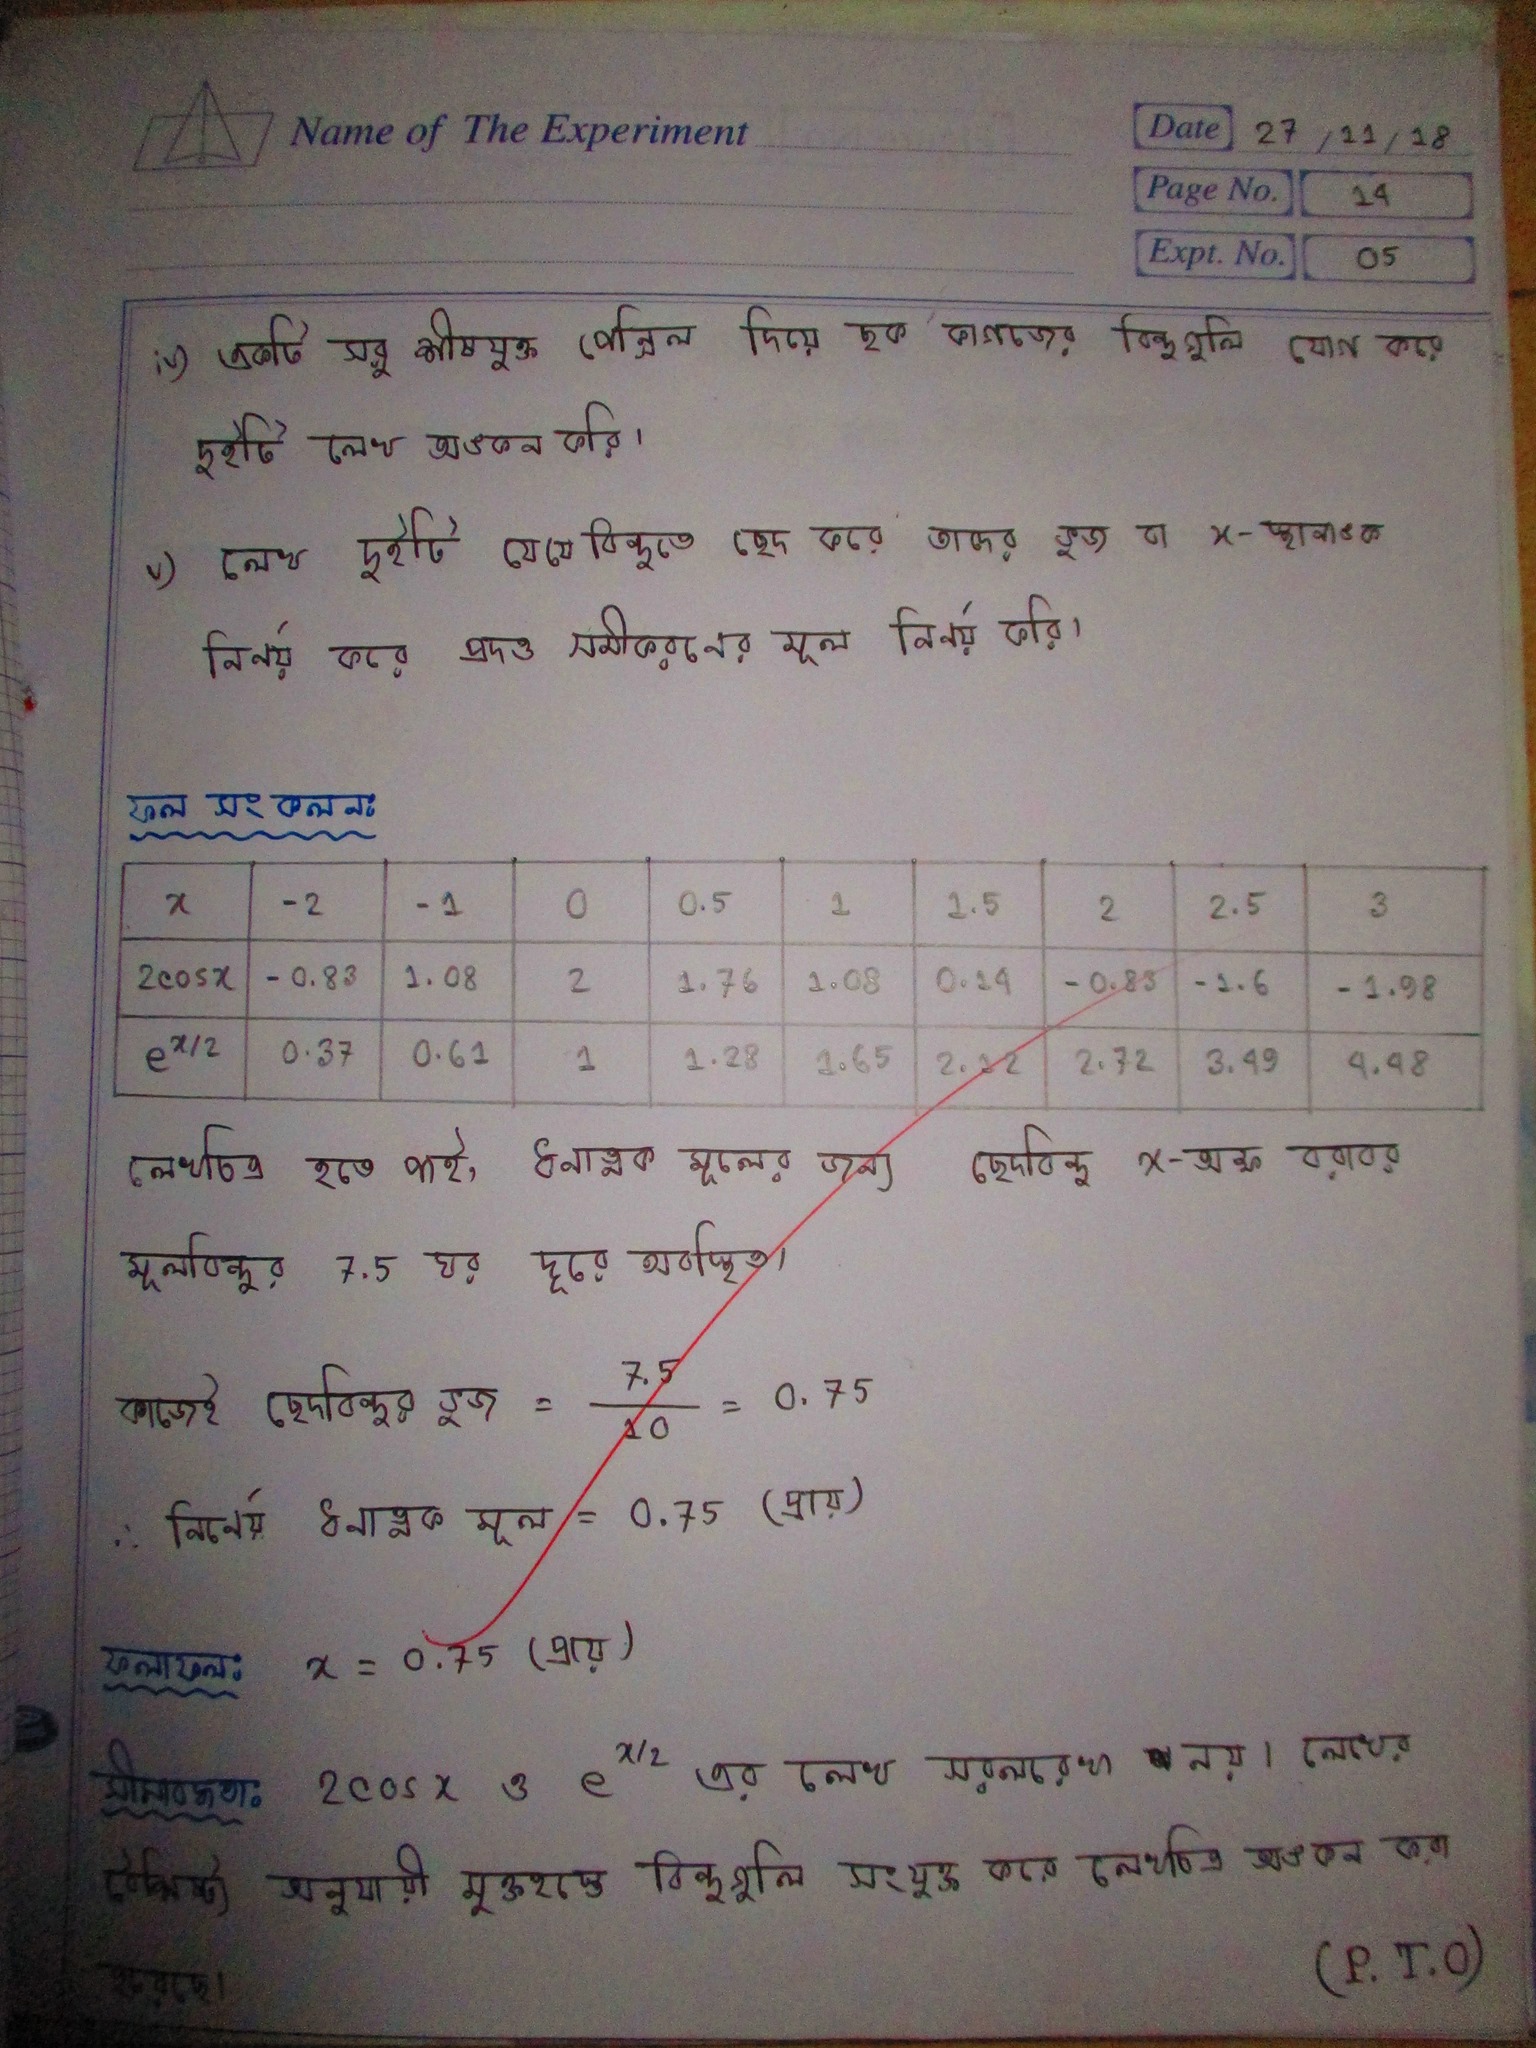 Name of The Experiment
Date 27/11/18
Page No. 14
Expt. No. 05
iv) একটি সরু শীষযুক্ত পেন্সিল দিয়ে ছক কাগজের বিন্দুগুলি যোগ করে
দুইটি লেখ অঙকন করি।
v) লেখ দুইটি যেযে বিন্দুতে ছেদ করে তাদের ভুজ বা x-স্থানাঙক
নির্নয় করে প্রদত্ত সমীকরনের মূল নির্নয় করি।
ফল সংকলনঃ
x -2 -1 0 0.5 1 1.5 2 2.5 3
2cosx -0.83 1.08 2 1.76 1.08 0.14 -0.83 -1.6 -1.98
e^x/2 0.37 0.61 1 1.28 1.65 2.12 2.72 3.49 4.48
লেখচিত্র হতে পাই, ধনাত্নক মূলের জন্য ছেদবিন্দু x-অক্ষ বরাবর
মূলবিন্দুর 7.5 ঘর দূরে অবস্থিত।
কাজেই ছেদবিন্দুর ভুজ = 7.5/10 = 0.75
∴ নির্নেয় ধনাত্নক মূল = 0.75 (প্রায়)
ফলাফলঃ x = 0.75 (প্রায়)
সীমাবদ্ধতাঃ 2cosx ও e^x/2 এর লেখ সরলরেখা নয়। লেখের
বৈশিষ্ট্য অনুযায়ী মুক্তহস্তে বিন্দুগুলি সংযুক্ত করে লেখচিত্র অঙকন করা
হয়েছে।
(P.T.O)